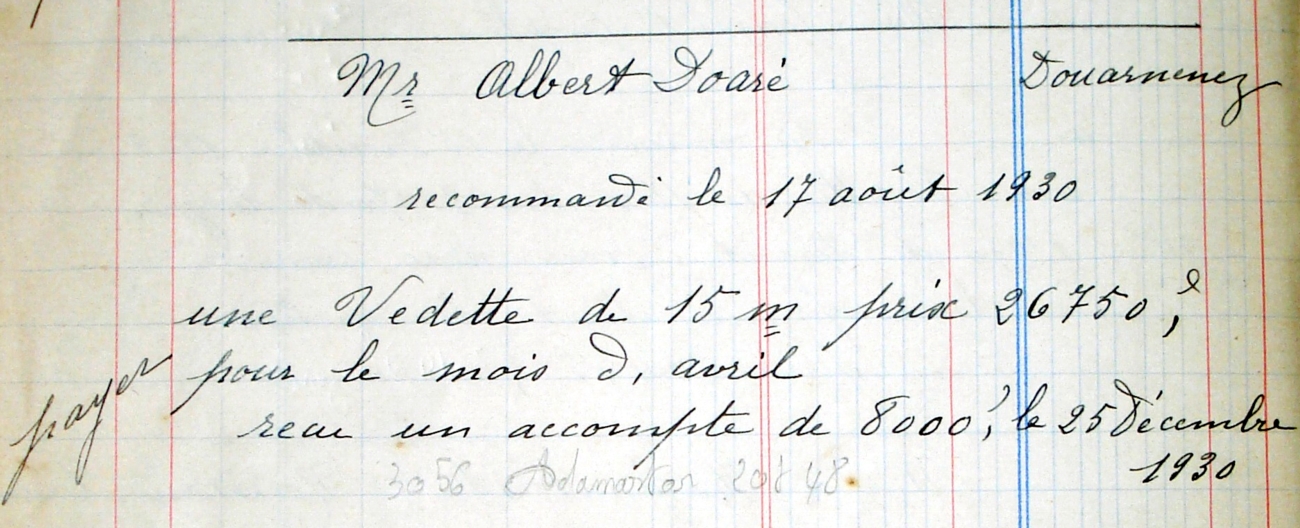 Mr Albert Doaré Douarnenez
recommandé le 17 août 1930
une Vedette de 15 m prix 26750,
pour le mois d, avril
payer
recu un accompte de 8000, le 25 Décembre
1930
3056 Adamastor 20t 48